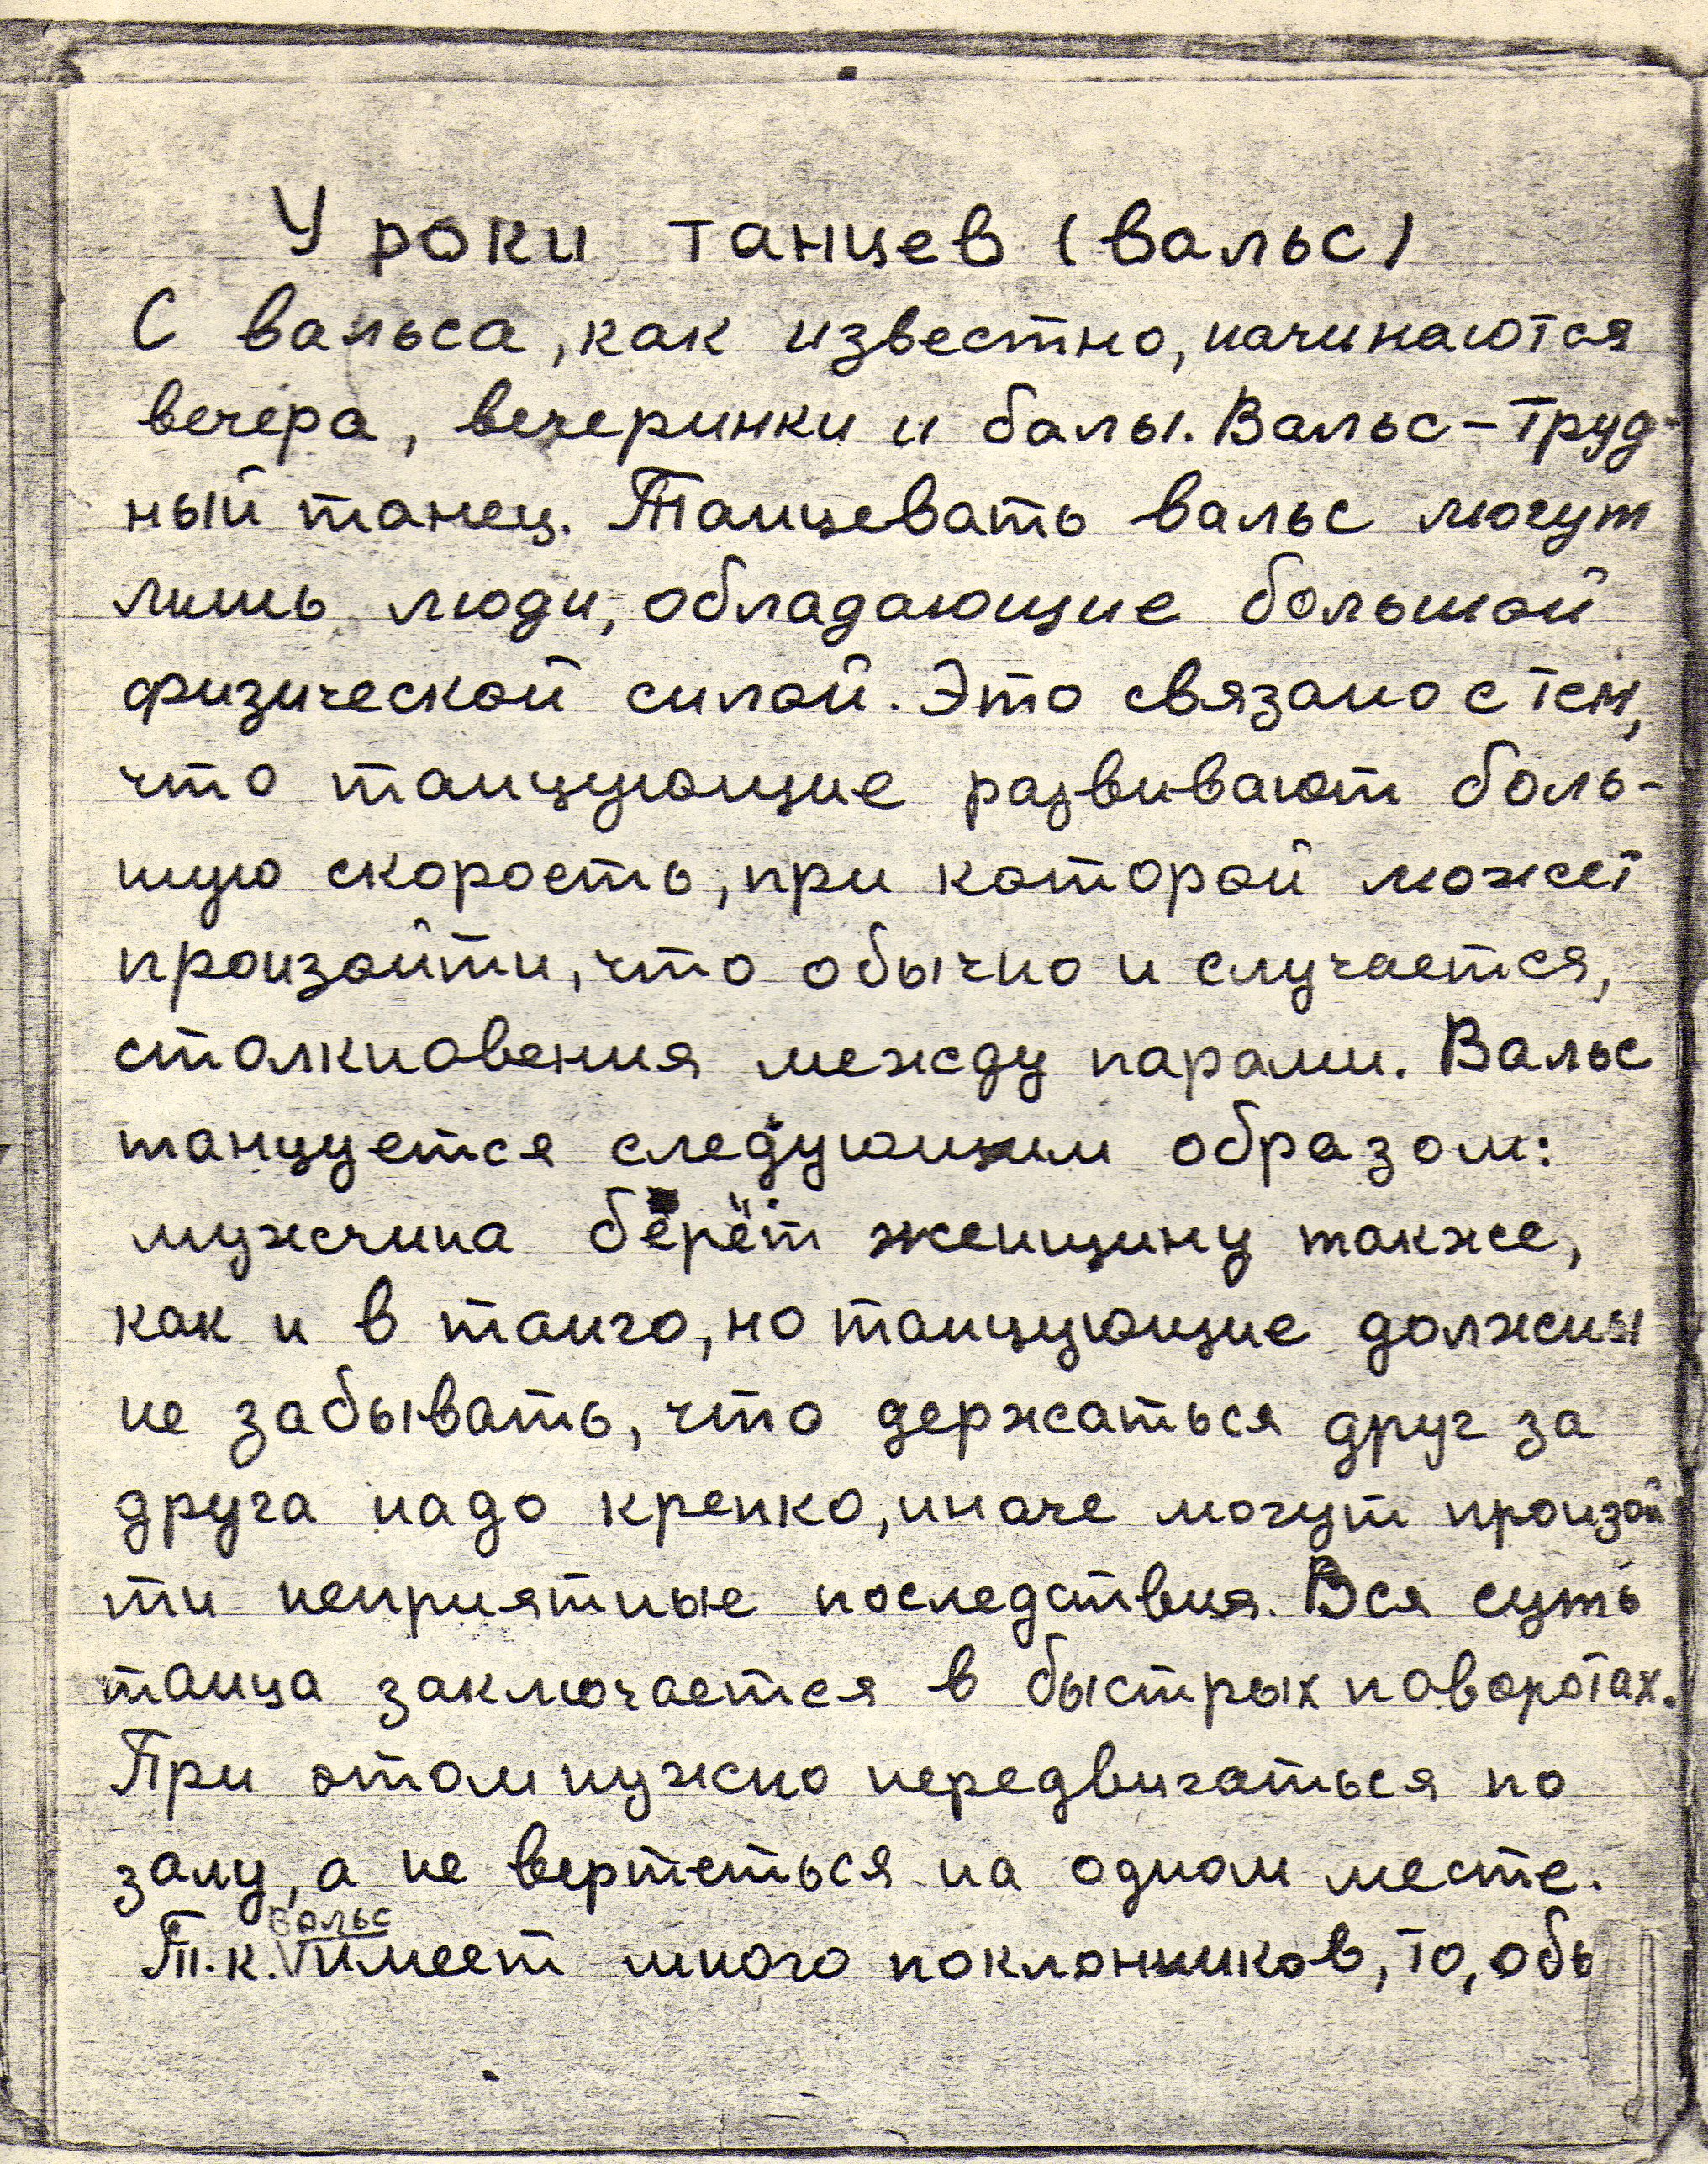 Уроки танцев (вальс)
С вальса, как известно, начинаются
вечера, вечеринки и балы. Вальс – труд-
ный танец. Танцевать вальс могут
лишь люди, обладающие большой
физической силой. Это связано с тем,
что танцующие развивают боль-
шую скорость, при которой может
произойти, что обычно и случается,
столкновения между парами. Вальс
танцуется следующим образом:
мужчина берёт женщину также,
как и в танго, но танцующие должны
не забывать, что держаться друг за
друга надо крепко, иначе могут произой
ти неприятные последствия. Вся суть
танца заключается в быстрых поворотах.
При этом нужно передвигаться по
залу, а не вертеться на одном месте.
вальс
Т.к. имеет много поклонников, то, обы